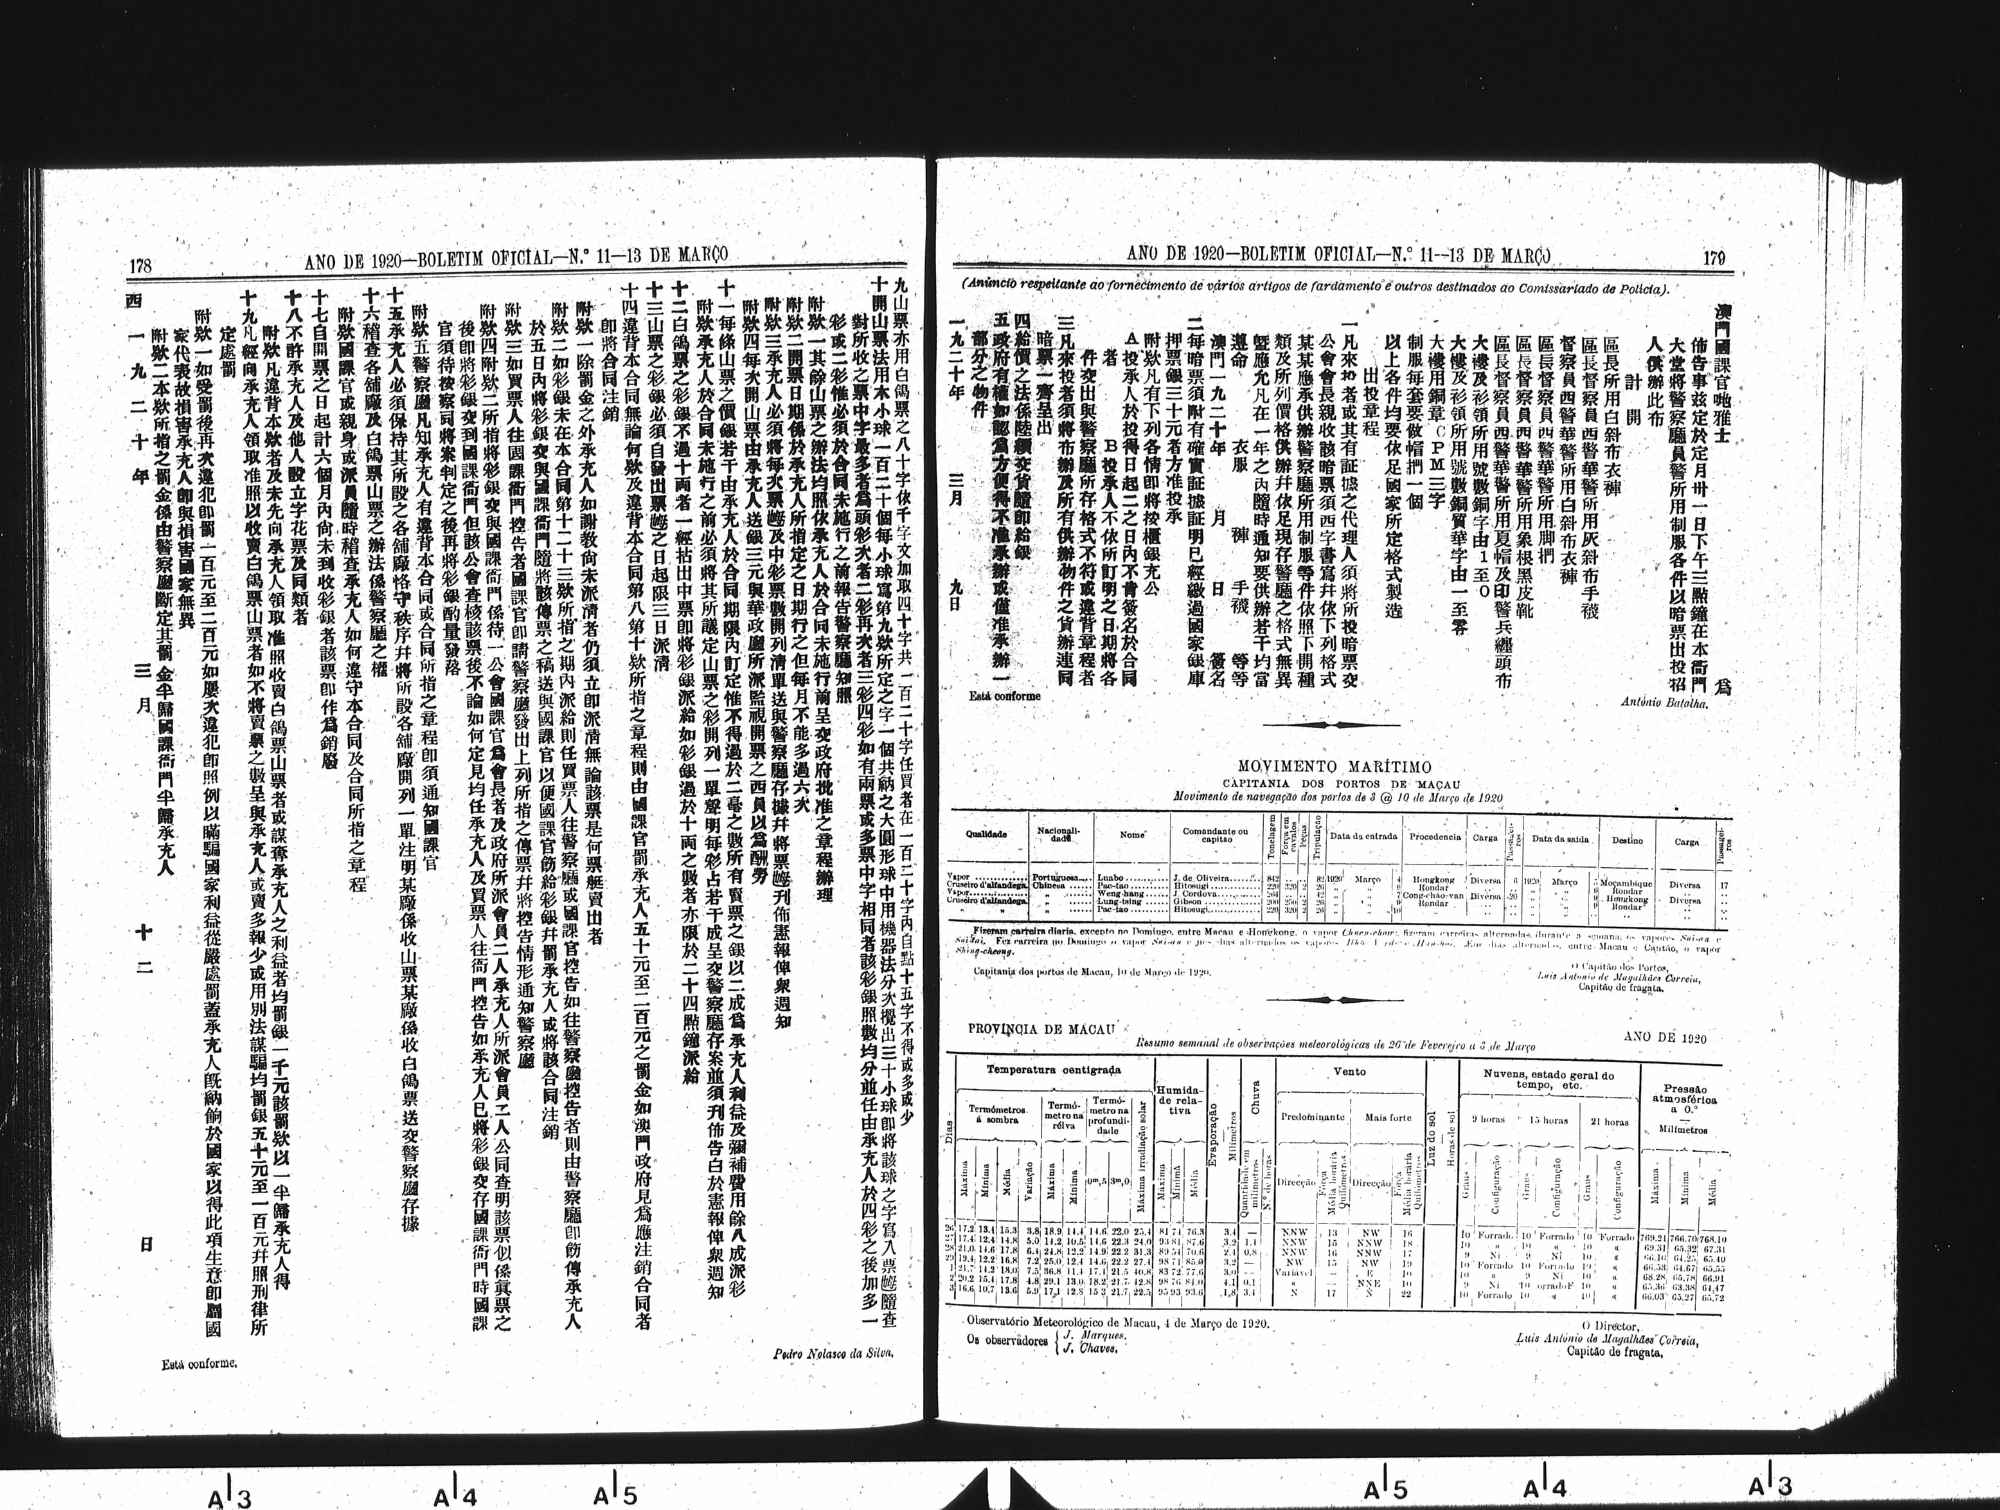 178
ANO DE 1920—BOLETIM OFICIAL—N.º 11—13 DE MARÇO
九山票亦用白鴿票之八十字依千字文加取四十字共一百二十字任買者在一百二十字內自點十五字不得或多或少
十開山票法用木小球一百二十個每小球寫第九欵所定之字一個共納之大圓形球中用機器法分次攪出三十小球卽將該球之字寫入票𢲲隨查
對所收之票中字最多者爲頭彩次者二彩再次者三彩四彩如有兩票或多票中字相同者該彩銀照數均分並任由承充人於四彩之後加多一
彩或二彩惟必須於合同未施行之前報告警察廳知照
附欵一其餘山票之辦法均照依承充人於合同未施行前呈交政府批准之章程辦理
附欵二開票日期係於承充人所指定之日期行之但每月不能多過六次
附欵三承充人必須將每次票𢲲及中彩票數開列清單送與警察廳存據幷將票𢲲刊佈憲報俾衆週知
附欵四每次開山票由承充人送銀三元與華政廳所派監視開票之西員以爲酬勞
十一每條山票之價銀若干由承充人於合同期限內訂定惟不得過於二毫之數所有賣票之銀以二成爲承充人利益及彌補費用餘八成派彩
附欵承充人於合同未施行之前必須將其所議定山票之彩開列一單聲明每彩占若干成呈交警察廳存案並須刊佈告白於憲報俾衆週知
十二白鴿票之彩銀不過十兩者一經拈出中票卽將彩銀派給如彩銀過於十兩之數者亦限於二十四點鐘派給
十三山票之彩銀必須自發出票𢲲之日起限三日派清
十四違背本合同無論何欵及違背本合同第八第十欵所指之章程則由國課官罰承充人五十元至二百元之罰金如澳門政府見爲應注銷合同者
卽將合同注銷
附欵一除罰金之外承充人如謝教尚未派清者仍須立卽派清無論該票是何票艇賣出者
附欵二如彩銀未在本合同第十二十三欵所指之期內派給則任買票人往警察廳或國課官控告如往警察廳控告者則由警察廳卽飭傳承充人
於五日內將彩銀交與國課衙門隨將該傳票之稿送與國課官以便國課官飭給彩銀幷罰承充人或將該合同注銷
附欵三如買票人往國課衙門控告者國課官卽請警察廳發出上列所指之傳票幷將控告情形通知警察廳
附欵四附欵二所指將彩銀交與國課衙門係待一公會國課官爲會長者及政府所派會員二人承充人所派會員二人公同查明該票似係眞票之
後卽將彩銀交到國課衙門但該公會查核該票後不論如何定見均任承充人及買票人往衙門控告如承充人已將彩銀交存國課衙門時國課
官須待按察司將案判定之後再將彩銀酌量發落
附欵五警察廳凡知承充人有違背本合同或合同所指之章程卽須通知國課官
十五承充人必須保持其所設之各舖廠恪守秩序幷將所設各舖廠開列一單注明某廠係收山票某廠係收白鴿票送交警察廳存據
十六稽查各舖廠及白鴿票山票之辦法係警察廳之權
附欵國課官或親身或派員隨時稽查承充人如何違守本合同及合同所指之章程
十七自開票之日起計六個月內尚未到收彩銀者該票卽作爲銷廢
十八不許承充人及他人設立字花票及同類者
附欵凡違背本欵者及未先向承充人領取准照收賣白鴿票山票者或謀奪承充人之利益者均罰銀一千元該罰欵以一半歸承充人得
十九凡經向承充人領取准照以收賣白鴿票山票者如不將賣票之數呈與承充人或賣多報少或用別法謀騙均罰銀五十元至一百元幷照刑律所
定處罰
附欵一如受罰後再次違犯卽罰一百元至二百元如屢次違犯卽照例以瞞騙國家利益從嚴處罰蓋承充人旣納餉於國家以得此項生意卽屬國
家代表故損害承充人卽與損害國家無異
附欵二本欵所指之罰金係由警察廳斷定其罰金半歸國課衙門半歸承充人
西一九二十年 三月 十二 日
Pedro Nolasco da Silva.
Está conforme.
ANO DE 1920—BOLETIM OFICIAL—N.º 11—13 DE MARÇO
179
(Anúncio respeitante ao fornecimento de vários artigos de fardamento e outros destinados ao Comissariado de Polícia).
澳門國課官哋雅士 爲
佈告事茲定於定月卅一日下午三點鐘在本衙門
大堂將警察廳員警所用制服各件以暗票出投招
人供辦此布
計開
區長所用白斜布衣褲
區長督察員西警華警所用灰斜布手襪
督察員西警華警所用白斜布衣褲
區長督察員西警華警所用脚捫
區長督察員西警華警所用象根黑皮靴
區長督察員西警華警所用夏帽及印警兵纏頭布
大褸及衫領所用號數銅字由1至0
大褸及衫領所用號數銅質華字由一至零
大褸用銅章CPM三字
制服每套要做帽捫一個
以上各件均要依足國家所定格式製造
出投章程
一凡來投者或其有証據之代理人須將所投暗票交
公會會長親收該暗票須西字書寫幷依下列格式
某某應承供辦警察廳所用制服等件依照下開種
類及所列價格供辦幷依足現存警廳之格式無異
曁應允凡在一年之內隨時通知要供辦若干均富
遵命 衣服 褲 手襪 等等
澳門一九二十年 月 日 簽名
二每暗票須附有確實証據証明已經繳過國家銀庫
押票銀三十元者方准投承
附欵凡有下列各情卽將按櫃銀充公
A投承人於投得日起二之日內不肯簽名於合同
者 B投承人不依所訂明之日期將各
件交出與警察廳所存格式不符或違背章程者
三凡來投者須將布辦及所有供辦物件之貨辦連同
暗票一齊呈出
四給價之法係陸續交貨隨卽給銀
五政府有權如認爲方便得不准承辦或僅准承辦一
部分之物件
一九二十年 三月 九日
António Batalha.
Está conforme
MOVIMENTO MARÍTIMO
CAPITANIA DOS PORTOS DE MACAU
Movimento de navegação dos portos de 3 @ 10 de Março de 1920
Qualidade Nacionalidade Nome Comandante ou capitão Tonelagem Força em cavalos Peças Tripulação Data da entrada Procedencia Carga Passageiros Data da saída Destino Carga Passageiros
Vapor Portuguesa Luabo J. de Oliveira 842 82 1920 Março 4 Hongkong Diversa 8 1920 Março 5 Moçambique Diversa 17
Cruzeiro d'alfandega Chinesa Pac-tao Hitosugi 220 320 2 26 Rondar Rondar
Vapor Weng-hang J. Cordova 264 42 7 Cong-chao-van Diversa 20 Hongkong Diversa
Cruzeiro d'alfandega Lung-tsing Gibson 200 250 2 26 9 Rondar Rondar
Pac-tao Hitosugi 220 320 2 26 10
Fizeram carreira diaria, excepto no Domingo, entre Macau e Hongkong, o vapor
Shing-cheong.
Capitania dos portos de Macau, 10 de Março de 1920.
O Capitão dos Portos,
Luis Antonio de Magalhães Correia,
Capitão de fragata.
PROVÍNCIA DE MACAU
ANO DE 1920
Resumo semanal de observações meteorológicas de 26 de Fevereiro a 3 de Março
Dias Temperatura centigrada Humidade relativa Evaporação Milímetros Chuva Vento Luz do sol Horas de sol Nuvens, estado geral do tempo, etc. Pressão atmosférica a 0.º Milímetros
Termómetros á sombra Termómetro na relva Termómetro na profundidade Máxima irradiação solar Predominante Mais forte 9 horas 15 horas 21 horas
Máxima Mínima Média Variação Máxima Mínima 0m,5 3m,0 Máxima Mínima Média Quantidade em milímetros N.º de horas Direcção Força Média horária Quilómetros Direcção Força Média horária Quilómetros Graus Configuração Graus Configuração Graus Configuração Máxima Mínima Média
26 17.2 13.4 15.3 3.8 18.9 14.4 14.6 22.0 25.4 81 74 76.3 3.4 — NNW 13 NW 16 10 Forrado 10 Forrado 10 Forrado 769.21 766.70 768.10
27 17.4 12.4 14.8 5.0 14.2 10.5 14.6 22.3 24.0 93 81 87.6 3.2 1.4 NNW 15 NNW 18 10 « 10 « 10 « 69.31 65.32 67.31
28 21.0 14.6 17.8 6.4 24.8 12.2 14.9 22.2 31.3 89 54 70.6 2.4 0.8 NNW 16 NNW 17 9 Ni 9 Ni 10 « 66.16 64.25 65.40
29 19.4 12.2 16.8 7.2 25.0 12.4 14.6 22.2 27.4 98 71 85.0 3.2 — NW 15 NW 19 10 Forrado 10 Forrado 10 « 66.53 64.67 65.55
1 21.7 14.2 18.0 7.5 36.8 11.4 17.1 21.5 40.8 83 72 77.6 3.0 — Variavel — E 10 10 « 9 Ni 10 « 68.28 65.78 66.91
2 20.2 15.4 17.8 4.8 29.1 13.0 18.2 21.7 42.8 98 76 84.0 4.1 0.1 « — NNE 10 9 Ni 10 Forrado 10 « 65.36 63.38 64.47
3 16.6 10.7 13.6 5.9 17.1 12.8 15.3 21.7 22.5 95 93 93.6 1.8 3.1 N 17 N 22 10 Forrado 10 « 10 « 66.03 65.27 65.72
Observatório Meteorológico de Macau, 4 de Março de 1920.
Os observadores { J. Marques.
J. Chaves.
O Director,
Luis António de Magalhães Correia,
Capitão de fragata.
A3 A4 A5 A5 A4 A3